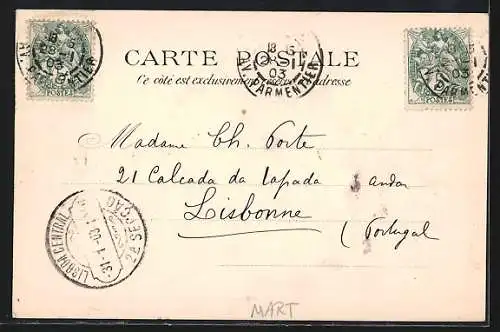 CARTE POSTALE
Ce côté est exclusivement réservé à l'adresse
AV. PARMENTIER
03
POSTES
Madame Ch. Porte
21 Calçada da Tapada 1 andar
Lisbonne
(Portugal
LISBOA CENTRAL
2ª SECÇÃO
31-1-03
MART